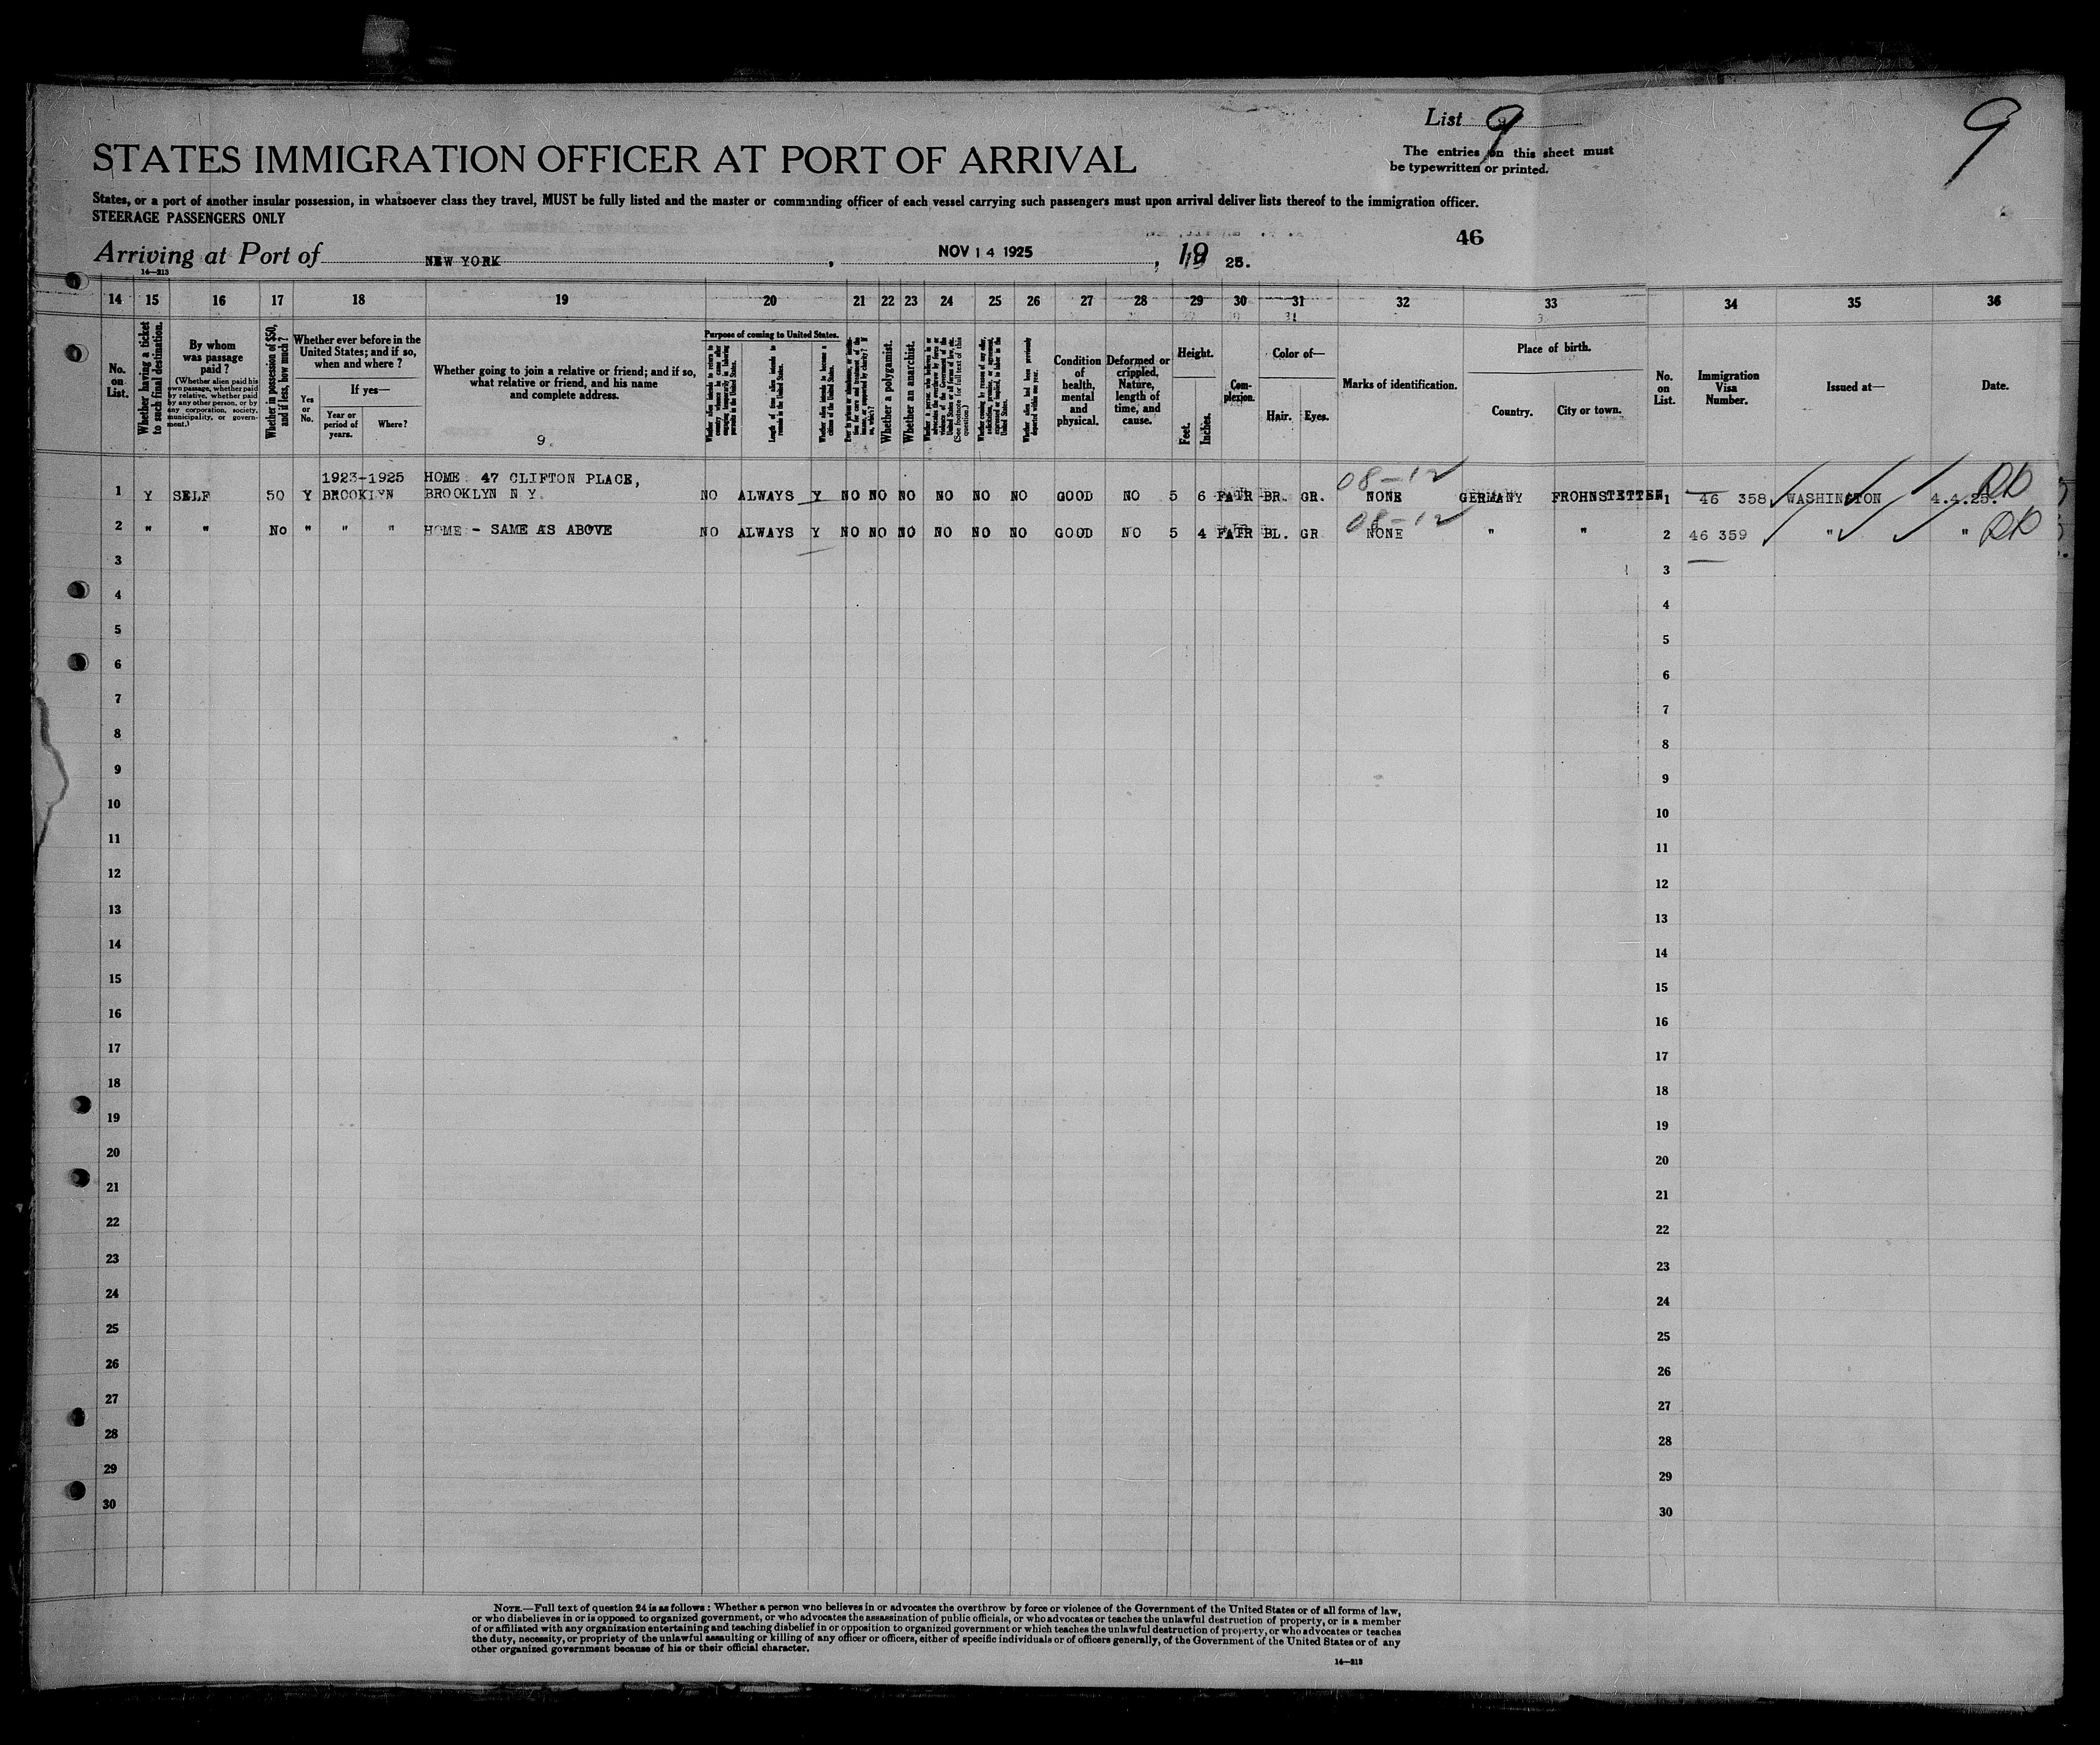 List 9
9
STATES IMMIGRATION OFFICER AT PORT OF ARRIVAL
The entries on this sheet must
be typewritten or printed.
States, or a port of another insular possession, in whatsoever class they travel, MUST be fully listed and the master or commanding officer of each vessel carrying such passengers must upon arrival deliver lists thereof to the immigration officer.
STEERAGE PASSENGERS ONLY
46
Arriving at Port of NEW YORK, NOV 14 1925, 19 25.
14—213
14 15 16 17 18 19 20 21 22 23 24 25 26 27 28 29 30 31 32 33 34 35 36
No. on List.
Whether having a ticket to such final destination.
By whom was passage paid?
(Whether alien paid his own passage, whether paid by relative, whether paid by any other person, or by any corporation, society, municipality, or government.)
Whether in possession of $50, and if less, how much?
Whether ever before in the United States; and if so, when and where?
If yes—
Yes or No.
Year or period of years.
Where?
Whether going to join a relative or friend; and if so, what relative or friend, and his name and complete address.
9
Purpose of coming to United States.
Whether alien intends to return to country whence he came after engaging temporarily in laboring pursuits in the United States.
Length of time alien intends to remain in the United States.
Whether alien intends to become a citizen of the United States.
Whether a polygamist.
Whether an anarchist.
(See footnote for full text of this question.)
Whether alien had been previously deported within one year.
Condition of health, mental and physical.
Deformed or crippled. Nature, length of time, and cause.
Height.
Feet.
Inches.
Complexion.
Color of—
Hair.
Eyes.
Marks of identification.
Place of birth.
Country.
City or town.
No. on List.
Immigration Visa Number.
Issued at—
Date.
1 Y SELF 50 Y 1923-1925 BROOKLYN HOME 47 CLIFTON PLACE, BROOKLYN N Y. NO ALWAYS Y NO NO NO NO NO NO GOOD NO 5 6 FAIR BR. GR. 08-12 NONE GERMANY FROHNSTETTEN 1 46 358 WASHINGTON 4.4.25.
2 " " No " " " HOME - SAME AS ABOVE NO ALWAYS Y NO NO NO NO NO NO GOOD NO 5 4 FAIR BL. GR 08-12 NONE " " 2 46 359 " "
3 3
4 4
5 5
6 6
7 7
8 8
9 9
10 10
11 11
12 12
13 13
14 14
15 15
16 16
17 17
18 18
19 19
20 20
21 21
22 22
23 23
24 24
25 25
26 26
27 27
28 28
29 29
30 30
NOTE.—Full text of question 24 is as follows: Whether a person who believes in or advocates the overthrow by force or violence of the Government of the United States or of all forms of law,
or who disbelieves in or is opposed to organized government, or who advocates the assassination of public officials, or who advocates or teaches the unlawful destruction of property, or is a member
of or affiliated with any organization entertaining and teaching disbelief in or opposition to organized government or which teaches the unlawful destruction of property, or who advocates or teaches
the duty, necessity, or propriety of the unlawful assaulting or killing of any officer or officers, either of specific individuals or of officers generally, of the Government of the United States or of any
other organized government because of his or their official character.
14—213